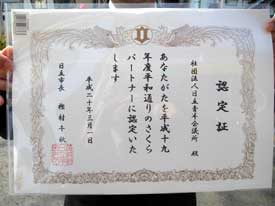 認定証
社団法人日立青年会議所 殿
あなたがたを平成十九
年度平和通りのさくら
パートナーに認定いた
します
平成二十年三月一日
日立市長 樫村千秋